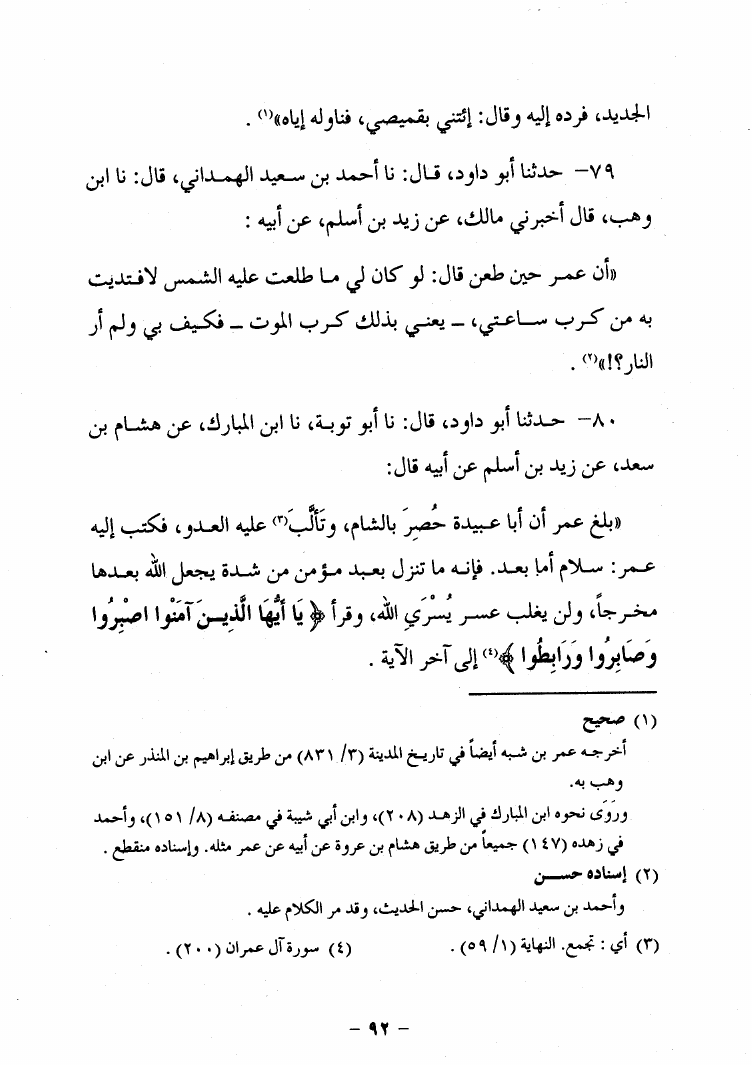 الجديد، فرده إليه وقال: إئتني بقميصي، فناوله إياه»(١) .
٧٩– حدثنا أبو داود، قال: نا أحمد بن سعيد الهمداني، قال: نا ابن
وهب، قال أخبرني مالك، عن زيد بن أسلم، عن أبيه :
«أن عمر حين طعن قال: لو كان لي ما طلعت عليه الشمس لافتديت
به من كرب ساعتي، – يعني بذلك كرب الموت – فكيف بي ولم أر
النار؟!»(٢) .
٨٠– حدثنا أبو داود، قال: نا أبو توبة، نا ابن المبارك، عن هشام بن
سعد، عن زيد بن أسلم عن أبيه قال:
«بلغ عمر أن أبا عبيدة حُصِرَ بالشام، وتَألَّبَ(٣) عليه العدو، فكتب إليه
عمر: سلام أما بعد. فإنه ما تنزل بعبد مؤمن من شدة يجعل الله بعدها
مخرجاً، ولن يغلب عسر يُسْرَيِ الله، وقرأ ﴿ يَا أَيُّهَا الَّذِينَ آمَنُوا اصْبِرُوا
وَصَابِرُوا وَرَابِطُوا ﴾(٤) إلى آخر الآية .
(١) صحيح
أخرجه عمر بن شبه أيضاً في تاريخ المدينة (٣/ ٨٣١) من طريق إبراهيم بن المنذر عن ابن
وهب به.
ورَوَى نحوه ابن المبارك في الزهد (٢٠٨)، وابن أبي شيبة في مصنفه (٨/ ١٥١)، وأحمد
في زهده (١٤٧) جميعاً من طريق هشام بن عروة عن أبيه عن عمر مثله. وإسناده منقطع .
(٢) إسناده حسن
وأحمد بن سعيد الهمداني، حسن الحديث، وقد مر الكلام عليه .
(٣) أي : تجمع. النهاية (١/ ٥٩) . (٤) سورة آل عمران (٢٠٠) .
– ٩٢ –